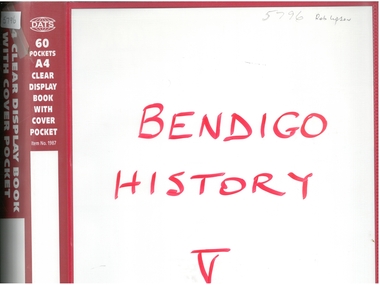 5796 Rob Lyson
DATS
60
POCKETS
A4
CLEAR
DISPLAY
BOOK
WITH
COVER
POCKET
Item No. 1987
5796
A4 CLEAR DISPLAY BOOK
WITH COVER POCKET
BENDIGO
HISTORY
V